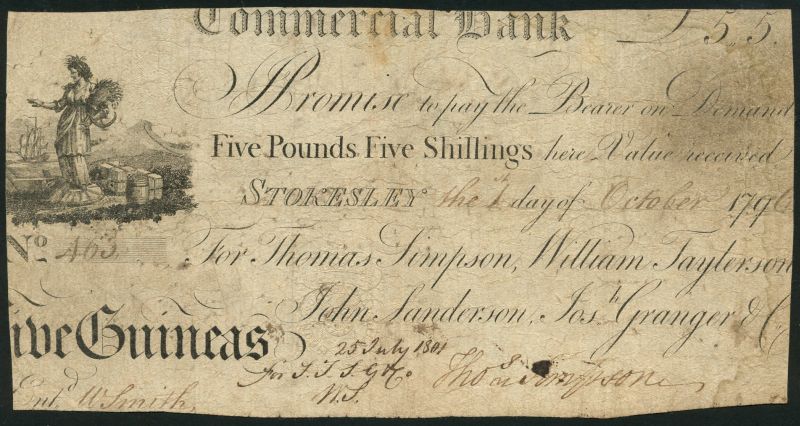 Commercial Bank £5.5.
I Promise to pay the Bearer on Demand
Five Pounds Five Shillings here Value received
STOKESLEY the 1st day of October 1796
No 463 For Thomas Simpson, William Taylerson
John Sanderson, Josh Granger & C
ive Guineas
25 July 1801
For T. T. S. G & Co. Thos Simpson
Entd W Smith W.S.